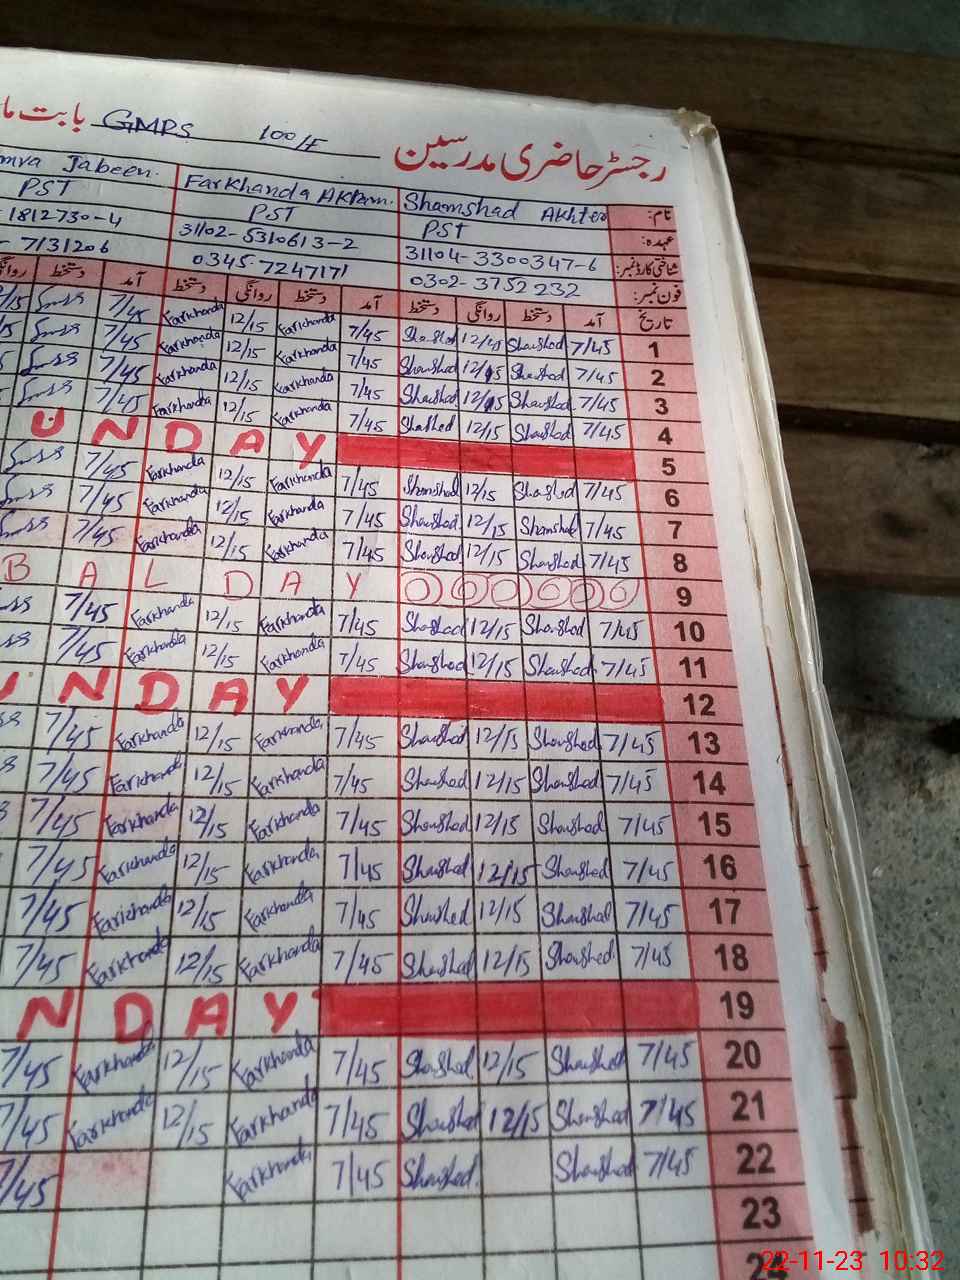 رجسٹر حاضری مدرسین 100/F GMPS بابت
نام: Shamshad Akhter Farkhanda Akram. Jabeen.
عہدہ: PST PST PST
شناختی کارڈ نمبر: 31104-3300347-6 31102-5310613-2 1812730-4
فون نمبر: 0302-3752232 0345-7247171 7131206
تاریخ آمد دستخط روانگی دستخط آمد دستخط روانگی دستخط آمد دستخط
1 7/45 Shamshad Shamshad 7/45 Farkhanda 12/15 Farkhanda 7/45
2 7/45 Shamshad 12/15 Shamshad 7/45 Farkhanda 12/15 Farkhanda 7/45
3 7/45 Shamshad 12/15 Shamshad 7/45 Farkhanda 12/15 Farkhanda 7/45
4 7/45 Shamshad 12/15 Shamshad 7/45 Farkhanda 12/15 Farkhanda 7/45
5 UNDAY
6 7/45 Shamshad 12/15 Shamshad 7/45 Farkhanda 12/15 Farkhanda 7/45
7 7/45 Shamshad 12/15 Shamshad 7/45 Farkhanda 12/15 Farkhanda 7/45
8 7/45 Shamshad 12/15 Shamshad 7/45 Farkhanda 12/15 Farkhanda 7/45
9 BAL DAY
10 7/45 Shamshad 12/15 Shamshad 7/45 Farkhanda 12/15 Farkhanda 7/45
11 7/45 Shamshad 12/15 Shamshad 7/45 Farkhanda 12/15 Farkhanda 7/45
12 UNDAY
13 7/45 Shamshad 12/15 Shamshad 7/45 Farkhanda 12/15 Farkhanda 7/45
14 7/45 Shamshad 12/15 Shamshad 7/45 Farkhanda 12/15 Farkhanda 7/45
15 7/45 Shamshad 12/15 Shamshad 7/45 Farkhanda 12/15 Farkhanda 7/45
16 7/45 Shamshad 12/15 Shamshad 7/45 Farkhanda 12/15 Farkhanda 7/45
17 7/45 Shamshad 12/15 Shamshad 7/45 Farkhanda 12/15 Farkhanda 7/45
18 7/45 Shamshad 12/15 Shamshad 7/45 Farkhanda 12/15 Farkhanda 7/45
19 NDAY
20 7/45 Shamshad 12/15 Shamshad 7/45 Farkhanda 12/15 Farkhanda 7/45
21 7/45 Shamshad 12/15 Shamshad 7/45 Farkhanda 12/15 Farkhanda 7/45
22 7/45 Shamshad Shamshad 7/45 Farkhanda 7/45
23
24
22-11-23 10:32